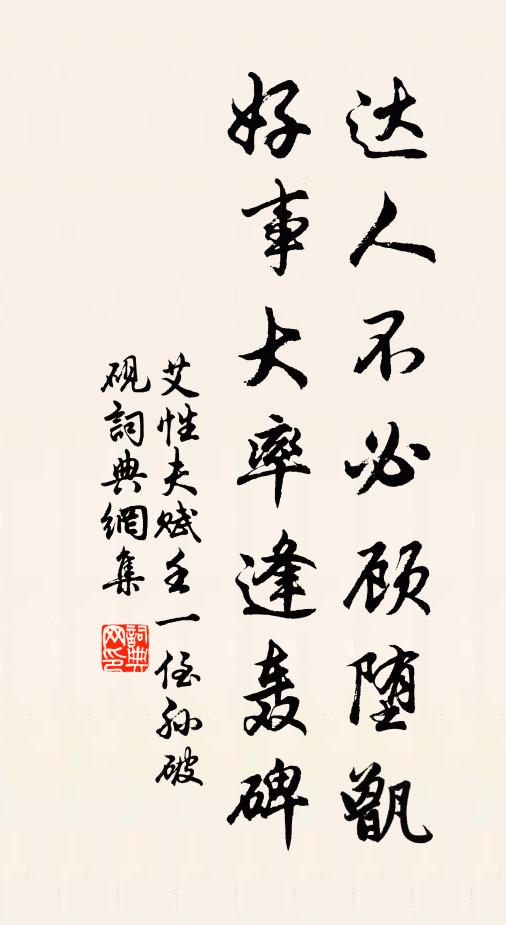 达人不必顾堕甑
好事大率逢轰碑
艾性夫赋王一侄孙破
砚词典網集
詞典网印